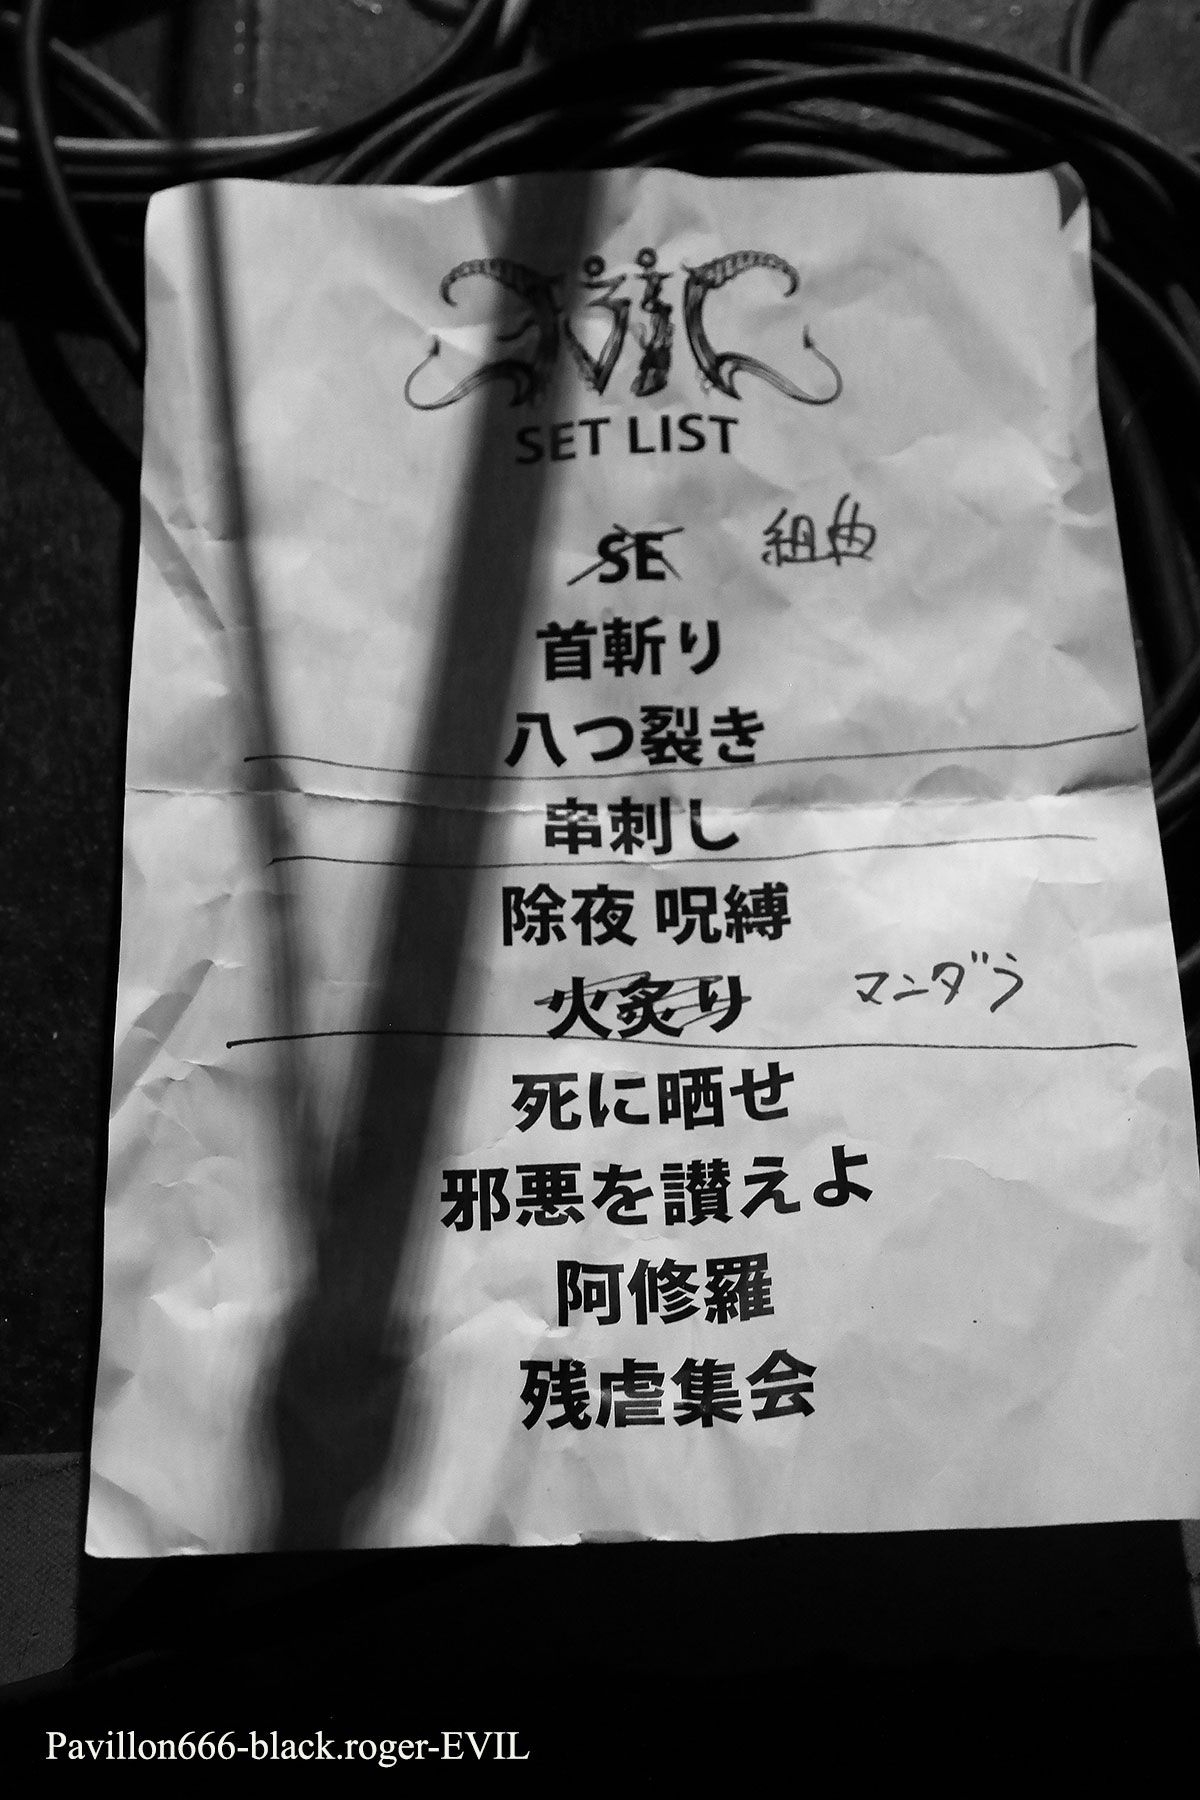 EVIL
SET LIST
SE 組曲
首斬り
八つ裂き
串刺し
除夜 呪縛
火炙り マンダラ
死に晒せ
邪悪を讃えよ
阿修羅
残虐集会
Pavillon666-black.roger-EVIL